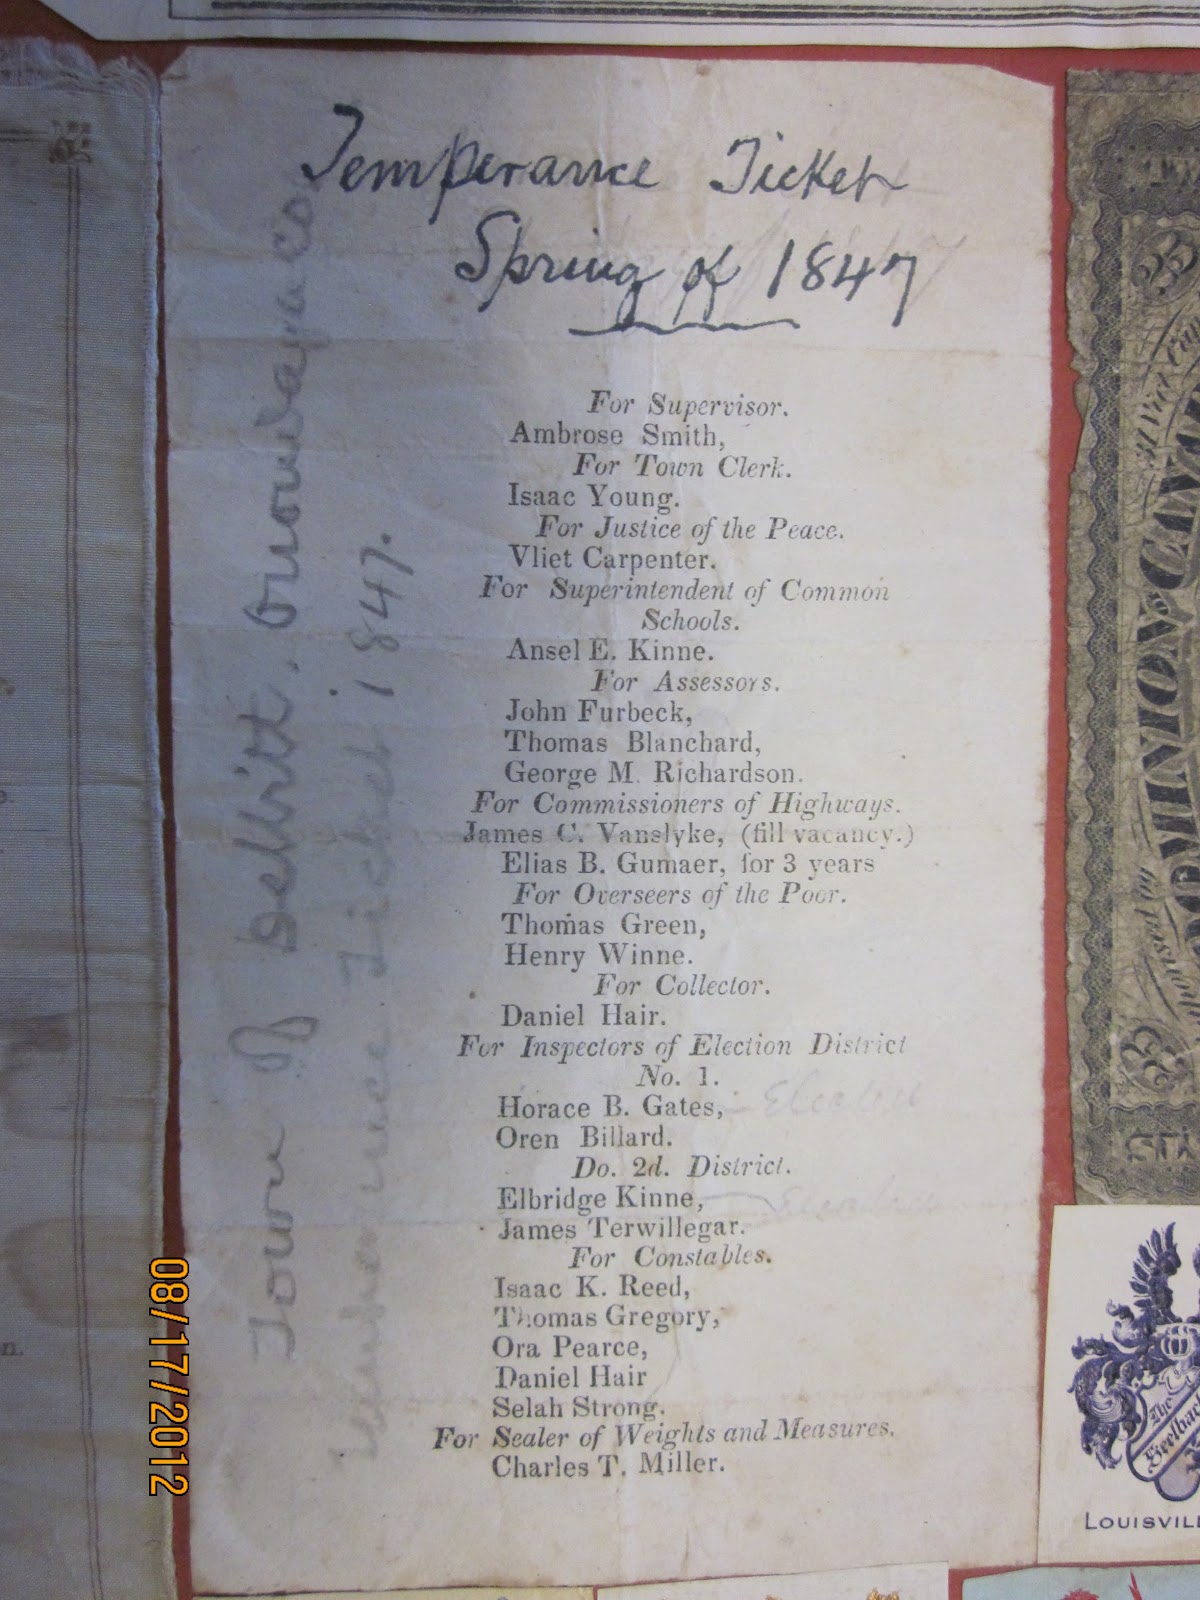 Temperance Ticket
Spring of 1847
Town of DeWitt. Onondaga Co.
Temperance Ticket 1847.
For Supervisor.
Ambrose Smith,
For Town Clerk.
Isaac Young.
For Justice of the Peace.
Vliet Carpenter.
For Superintendent of Common
Schools.
Ansel E. Kinne.
For Assessors.
John Furbeck,
Thomas Blanchard,
George M. Richardson.
For Commissioners of Highways.
James C. Vanslyke, (fill vacancy.)
Elias B. Gumaer, for 3 years
For Overseers of the Poor.
Thomas Green,
Henry Winne.
For Collector.
Daniel Hair.
For Inspectors of Election District
No. 1.
Horace B. Gates, - Elected
Oren Billard.
Do. 2d. District.
Elbridge Kinne, - Elected
James Terwillegar.
For Constables.
Isaac K. Reed,
Thomas Gregory,
Ora Pearce,
Daniel Hair
Selah Strong.
For Sealer of Weights and Measures.
Charles T. Miller.
08/17/2012
DOMINION OF CAN
The
Seelbac
LOUISVILL
n.